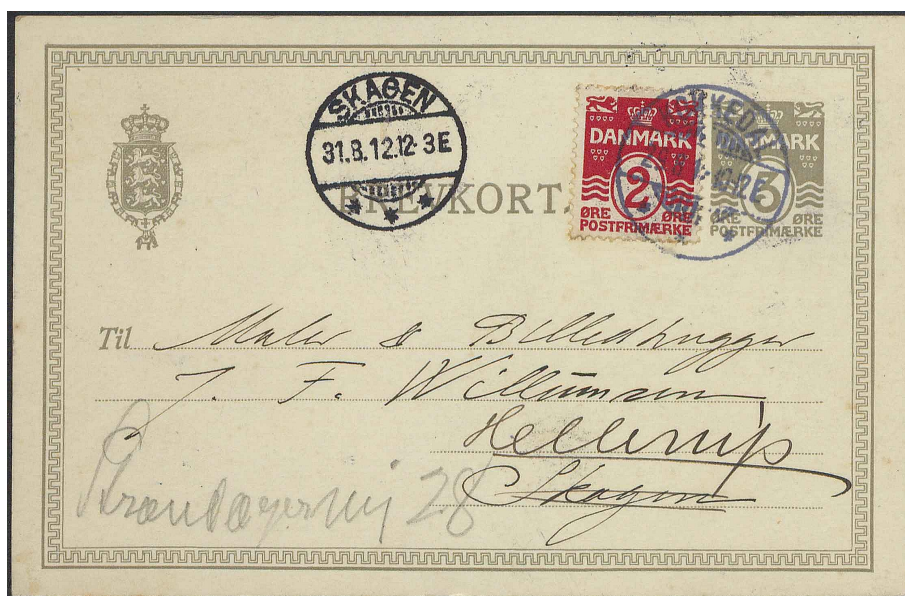 SKAGEN
31.8.12.12-3E
BREVKORT.
DANMARK
2
ØRE ØRE
POSTFRIMÆRKE
DANMARK
3
ØRE ØRE
POSTFRIMÆRKE
Til Maler & Billedhugger
J. F. Willumsen
Hellerup
Skagen
28